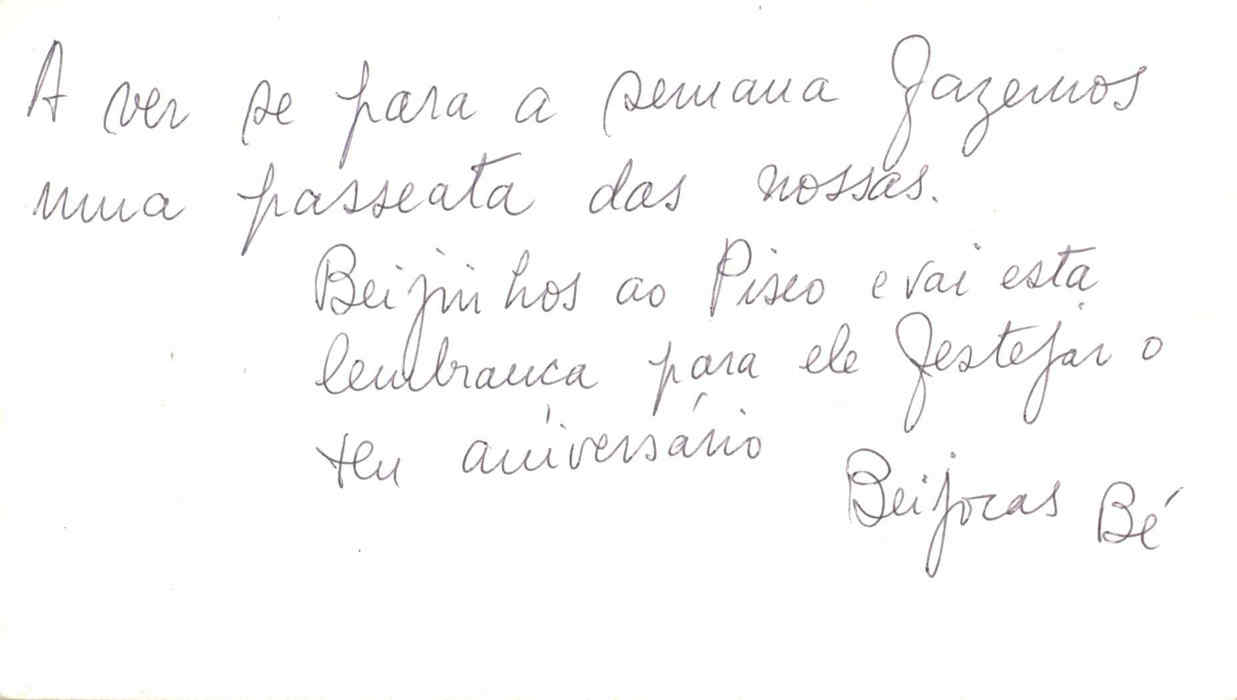 A ver se para a semana fazemos
uma passeata das nossas.
Beijinhos ao Pisco e vai esta
lembranca para ele festejar o
teu aniversário
Beijocas Bé